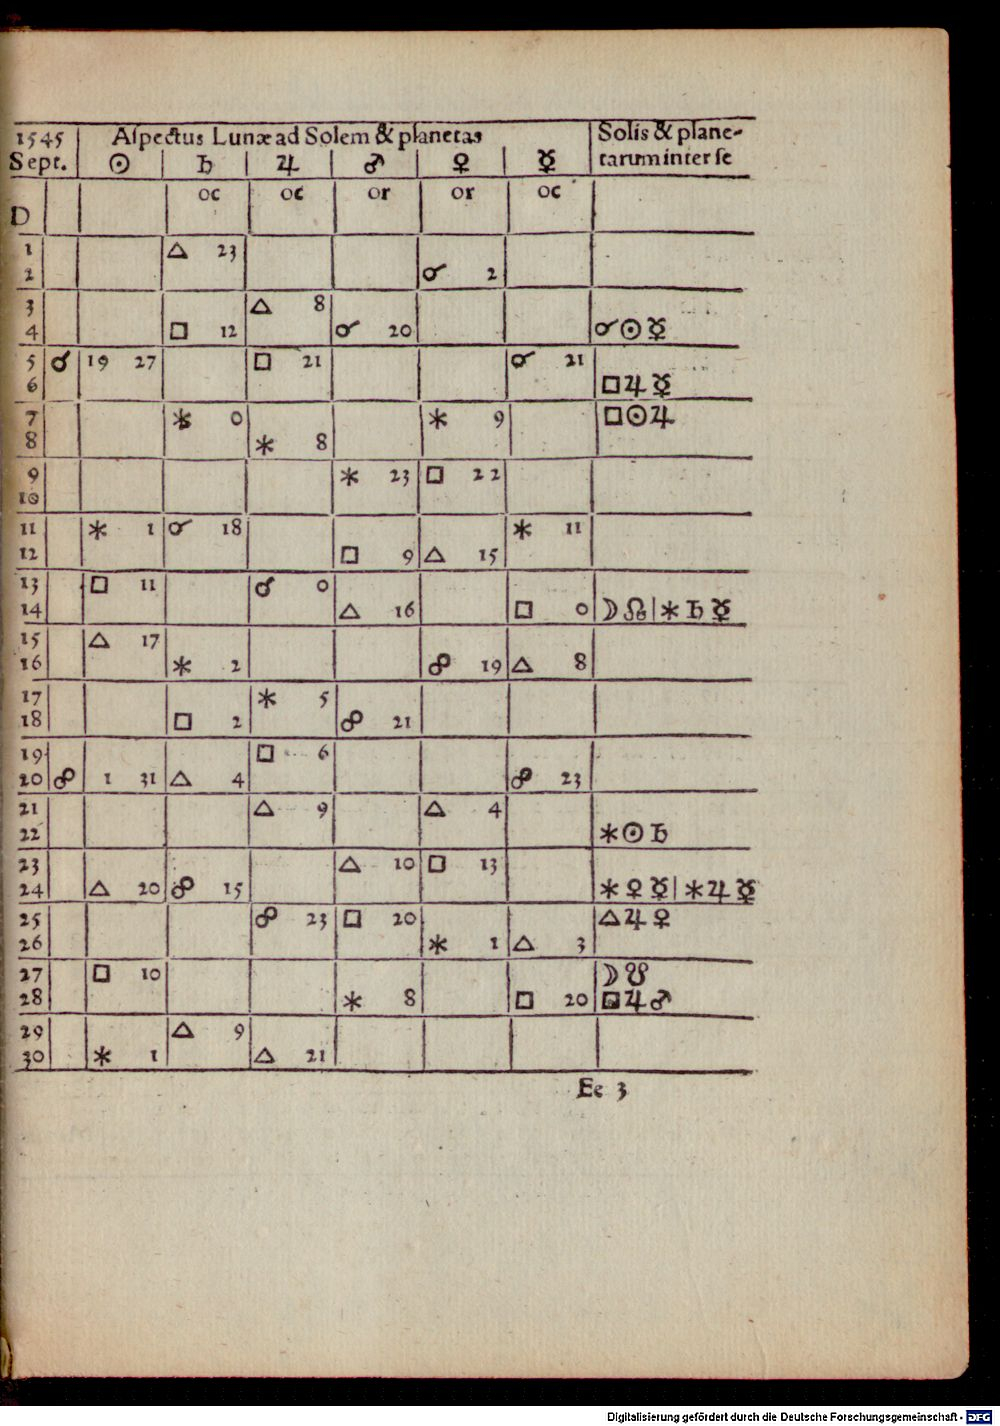 1545 Aſpectus Lunæ ad Solem & planetas Solis & plane-
Sept. ☉ ♄ ♃ ♂ ♀ ☿ tarum inter ſe
D oc oc or or oc
1 △ 23
2 ☌ 2
3 △ 8
4 □ 12 ☌ 20 ☌☉☿
5 ☌ 19 27 □ 21 ☌ 21
6 □♃☿
7 ⚹ 0 ⚹ 9 □☉♃
8 ⚹ 8
9 ⚹ 23 □ 22
10
11 ⚹ 1 ☌ 18 ⚹ 11
12 □ 9 △ 15
13 □ 11 ☌ 0
14 △ 16 □ 0 ☽☊|⚹♄☿
15 △ 17
16 ⚹ 2 ☍ 19 △ 8
17 ⚹ 5
18 □ 2 ☍ 21
19 □ 6
20 ☍ 1 31 △ 4 ☍ 23
21 △ 9 △ 4
22 ⚹☉♄
23 △ 10 □ 13
24 △ 20 ☍ 15 ⚹♀☿|⚹♃☿
25 ☍ 23 □ 20 △♃♀
26 ⚹ 1 △ 3
27 □ 10 ☽☋
28 ⚹ 8 □ 20 □♃♂
29 △ 9
30 ⚹ 1 △ 21
Ee 3
Digitalisierung gefördert durch die Deutsche Forschungsgemeinschaft - DFG